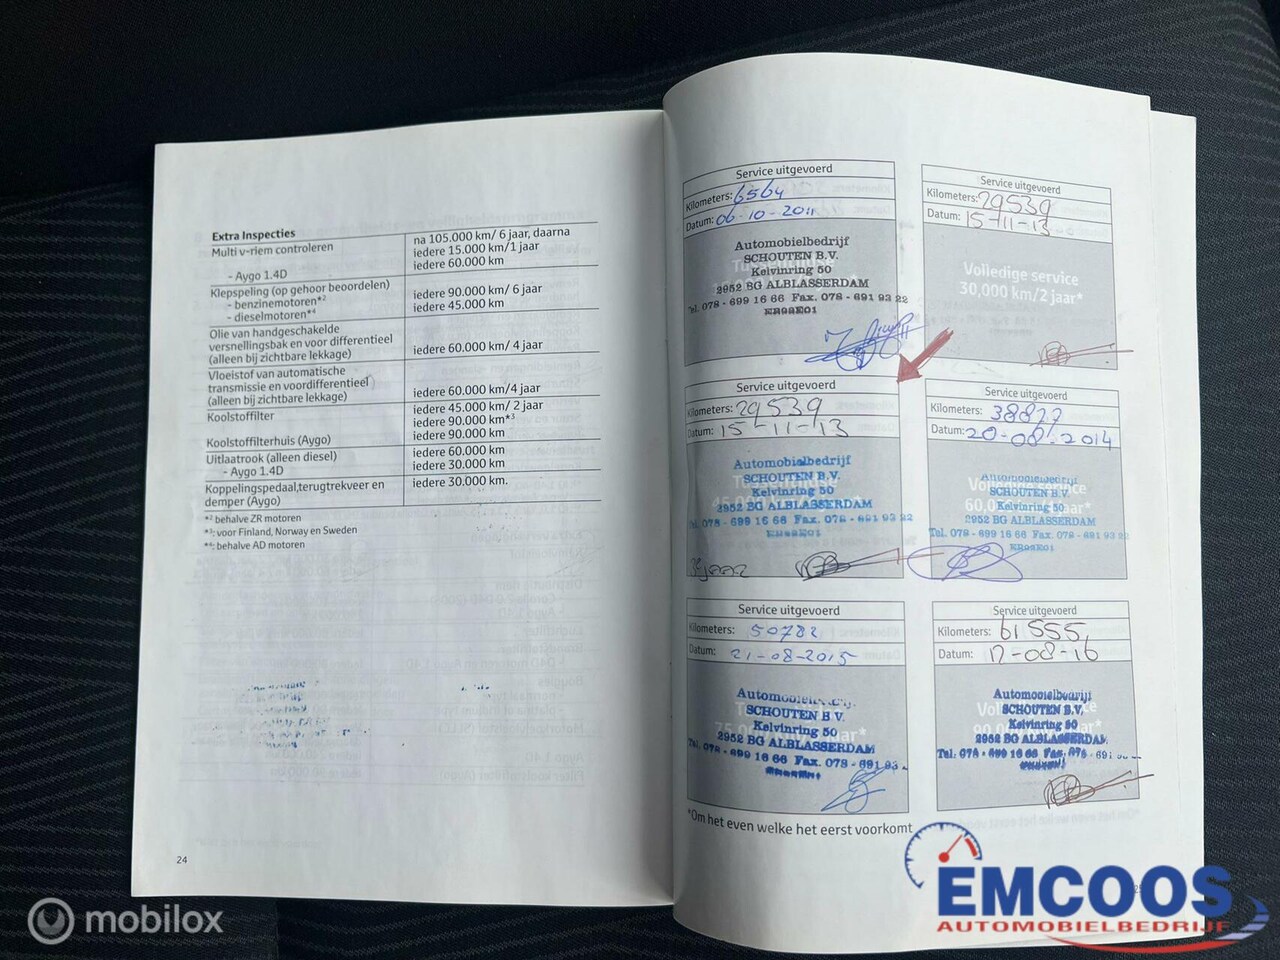 Extra Inspecties
Multi v-riem controleren
na 105.000 km/ 6 jaar, daarna
iedere 15.000 km/1 jaar
- Aygo 1.4D
iedere 60.000 km
Klepspeling (op gehoor beoordelen)
- benzinemotoren*²
iedere 90.000 km/ 6 jaar
- dieselmotoren*⁴
iedere 45.000 km
Olie van handgeschakelde
versnellingsbak en voor differentieel
(alleen bij zichtbare lekkage)
iedere 60.000 km/ 4 jaar
Vloeistof van automatische
transmissie en voordifferentieel
(alleen bij zichtbare lekkage)
iedere 60.000 km/4 jaar
Koolstoffilter
iedere 45.000 km/ 2 jaar
iedere 90.000 km*³
Koolstoffilterhuis (Aygo)
iedere 90.000 km
Uitlaatrook (alleen diesel)
iedere 60.000 km
- Aygo 1.4D
iedere 30.000 km
Koppelingspedaal,terugtrekveer en
demper (Aygo)
iedere 30.000 km.
*² behalve ZR motoren
*³: voor Finland, Norway en Sweden
*⁴: behalve AD motoren
24
Service uitgevoerd
Kilometers: 6564
Datum: 06-10-2011
Automobielbedrijf
SCHOUTEN B.V.
Kelvinring 50
2952 BG ALBLASSERDAM
Tel. 078 - 699 16 66 Fax. 078 - 691 93 22
ER98E01
Service uitgevoerd
Kilometers: 29539
Datum: 15-11-13
Volledige service
30,000 km/2 jaar*
Service uitgevoerd
Kilometers: 29539
Datum: 15-11-13
Automobielbedrijf
SCHOUTEN B.V.
Kelvinring 50
2952 BG ALBLASSERDAM
Tel. 078 - 699 16 66 Fax. 078 - 691 93 22
Service uitgevoerd
Kilometers: 38877
Datum: 20-08-2014
Automobielbedrijf
SCHOUTEN B.V.
Kelvinring 50
2952 BG ALBLASSERDAM
Tel. 078 - 699 16 66 Fax. 078 - 691 93 22
ER98E01
Service uitgevoerd
Kilometers: 50782
Datum: 21-08-2015
Automobielbedrijf
SCHOUTEN B.V.
Kelvinring 50
2952 BG ALBLASSERDAM
Tel. 078 - 699 16 66 Fax. 078 - 691 93
Service uitgevoerd
Kilometers: 61555
Datum: 17-08-16
Automobielbedrijf
SCHOUTEN B.V.
Kelvinring 50
2952 BG ALBLASSERDAM
Tel. 078 - 699 16 66 Fax. 078 - 691
*Om het even welke het eerst voorkomt
mobilox
EMCOOS
AUTOMOBIELBEDRIJF